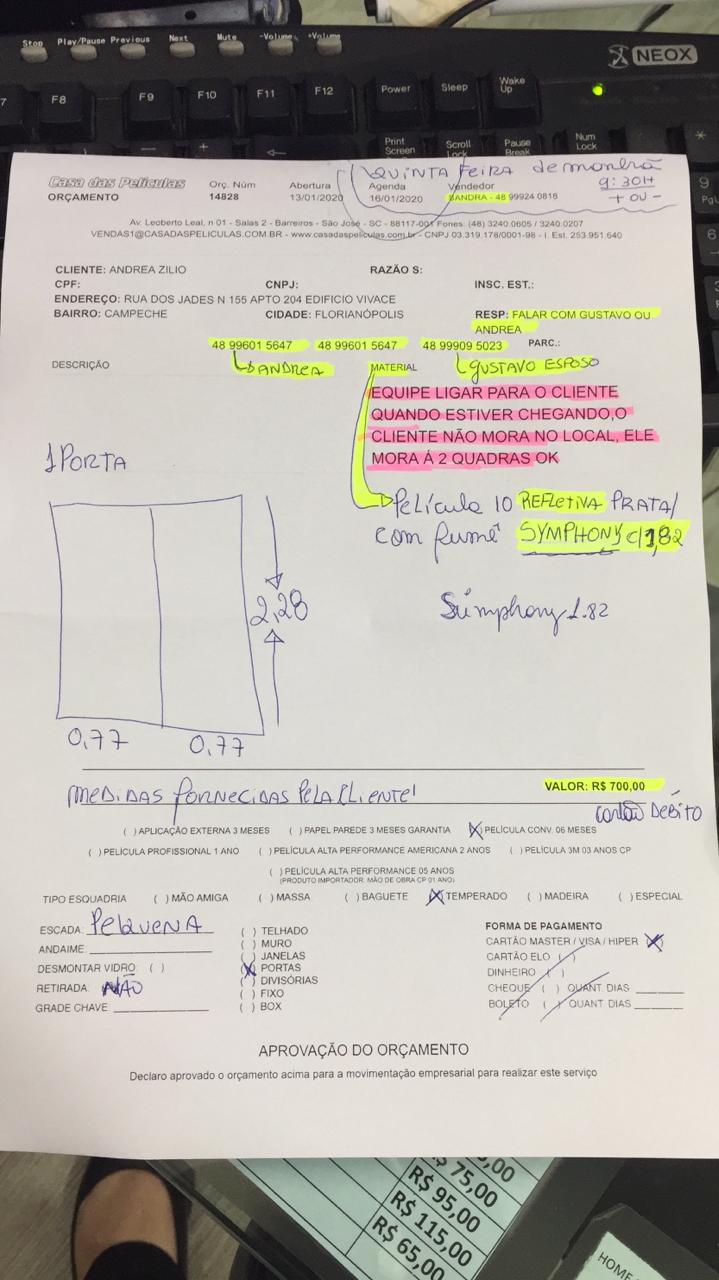 Stop Play/Pause Previous Next Mute -Volume +Volume
NEOX
7 F8 F9 F10 F11 F12 Power Sleep Wake Up
Print Screen Scroll Lock Pause Break Num Lock
QUINTA FEIRA de manhã
9:30H
+ OU -
Casa das Películas Orç. Núm Abertura Agenda Vendedor
ORÇAMENTO 14828 13/01/2020 16/01/2020 SANDRA - 48 99924 0818
Av. Leoberto Leal, n 01 - Salas 2 - Barreiros - São José - SC - 88117-001 Fones: (48) 3240.0605 / 3240.0207
VENDAS1@CASADASPELICULAS.COM.BR - www.casadaspeliculas.com.br - CNPJ 03.319.178/0001-98 - I. Est. 253.951.640
CLIENTE: ANDREA ZILIO RAZÃO S:
CPF: CNPJ: INSC. EST.:
ENDEREÇO: RUA DOS JADES N 155 APTO 204 EDIFICIO VIVACE
BAIRRO: CAMPECHE CIDADE: FLORIANÓPOLIS RESP: FALAR COM GUSTAVO OU
ANDREA
48 99601 5647 48 99601 5647 48 99909 5023 PARC.:
ANDREA GUSTAVO ESPOSO
DESCRIÇÃO MATERIAL
EQUIPE LIGAR PARA O CLIENTE
QUANDO ESTIVER CHEGANDO,O
CLIENTE NÃO MORA NO LOCAL, ELE
MORA Á 2 QUADRAS OK
1 PORTA
Película 10 REFLETIVA PRATA/
com fumê SYMPHONY c/1,82
2,28
Súmphony 1.82
0,77 0,77
VALOR: R$ 700,00
MEDIDAS FORNECIDAS PELA CLIENTE!
Cartão DÉBITO
( ) APLICAÇÃO EXTERNA 3 MESES ( ) PAPEL PAREDE 3 MESES GARANTIA (X) PELÍCULA CONV. 06 MESES
( ) PELÍCULA PROFISSIONAL 1 ANO ( ) PELÍCULA ALTA PERFORMANCE AMERICANA 2 ANOS ( ) PELÍCULA 3M 03 ANOS CP
( ) PELÍCULA ALTA PERFORMANCE 05 ANOS
(PRODUTO IMPORTADOR: MÃO DE OBRA CP 01 ANO)
TIPO ESQUADRIA ( ) MÃO AMIGA ( ) MASSA ( ) BAGUETE (X) TEMPERADO ( ) MADEIRA ( ) ESPECIAL
ESCADA: PEQUENA ( ) TELHADO FORMA DE PAGAMENTO
ANDAIME: ( ) MURO CARTÃO MASTER / VISA / HIPER (X)
( ) JANELAS CARTÃO ELO ( )
DESMONTAR VIDRO: ( ) (X) PORTAS DINHEIRO ( )
RETIRADA: NÃO ( ) DIVISÓRIAS CHEQUE ( ) QUANT. DIAS
( ) FIXO BOLETO ( ) QUANT DIAS
GRADE CHAVE: ( ) BOX
APROVAÇÃO DO ORÇAMENTO
Declaro aprovado o orçamento acima para a movimentação empresarial para realizar este serviço
R$ 75,00
R$ 95,00
R$ 115,00
R$ 65,00
HOME